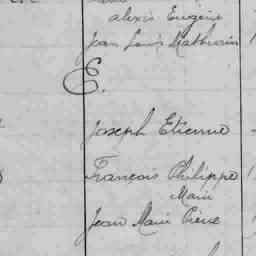 alexis Eugène
Jean Louis Mathurin
E.
Joseph Etienne
François Philippe
Marie
Jean Marie Pierre